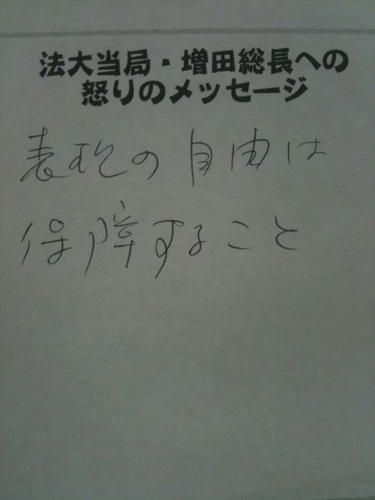 法大当局・増田総長への
怒りのメッセージ
表現の自由は
保障すること